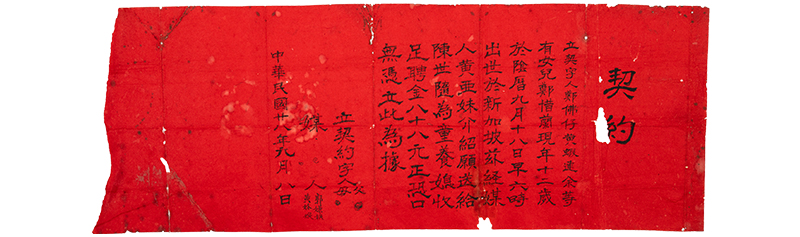 契約
立契字人鄭佛仔黄蝦連余等
有女兒鄭惜蘭現年十二歲
於陰曆九月十八日早六時
出世於新加坡茲經媒
人黄亞妹介紹願送給
陳世隨為童養媳收
足聘金八十八元正恐口
無憑立此為據
立契約字人父母
媒人
中華民國廿八年九月八日